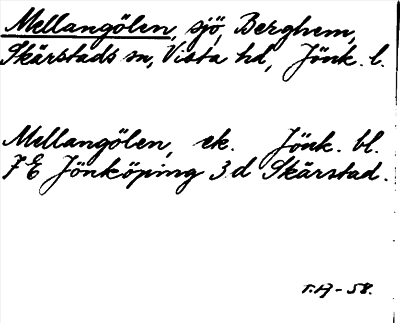 Mellangölen, sjö, Berghem,
Skärstads sn, Vista hd, Jönk. l.
Mellangölen, ek. Jönk. bl.
7 E Jönköping 3 d Skärstad.
T.A-58.